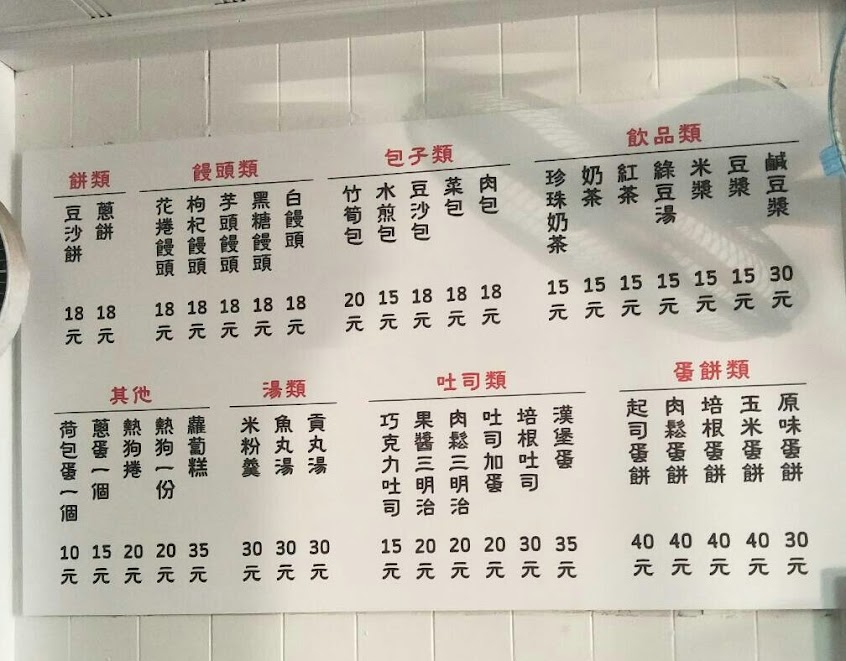 飲品類
鹹豆漿 30元
豆漿 15元
米漿 15元
綠豆湯 15元
紅茶 15元
奶茶 15元
珍珠奶茶 15元
包子類
肉包 18元
菜包 18元
豆沙包 18元
水煎包 15元
竹筍包 20元
饅頭類
白饅頭 18元
黑糖饅頭 18元
芋頭饅頭 18元
枸杞饅頭 18元
花捲饅頭 18元
餅類
蔥餅 18元
豆沙餅 18元
蛋餅類
原味蛋餅 30元
玉米蛋餅 40元
培根蛋餅 40元
肉鬆蛋餅 40元
起司蛋餅 40元
吐司類
漢堡蛋 35元
培根吐司 30元
吐司加蛋 20元
肉鬆三明治 20元
果醬三明治 20元
巧克力吐司 15元
湯類
貢丸湯 30元
魚丸湯 30元
米粉羹 30元
其他
蘿蔔糕 35元
熱狗一份 20元
熱狗捲 20元
蔥蛋一個 15元
荷包蛋一個 10元